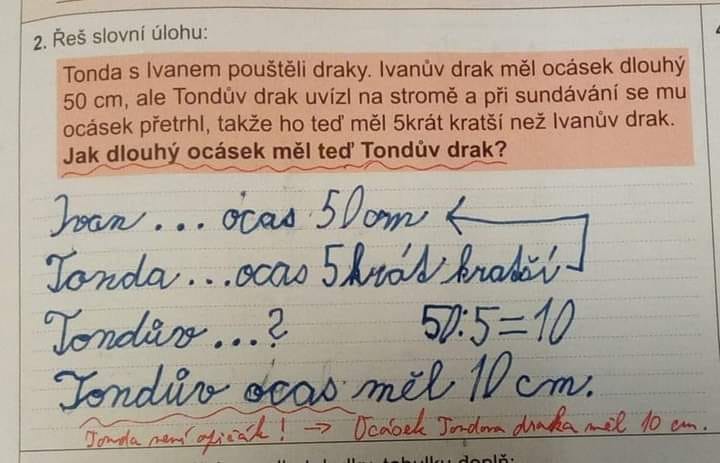 2. Řeš slovní úlohu:
Tonda s Ivanem pouštěli draky. Ivanův drak měl ocásek dlouhý
50 cm, ale Tondův drak uvízl na stromě a při sundávání se mu
ocásek přetrhl, takže ho teď měl 5krát kratší než Ivanův drak.
Jak dlouhý ocásek měl teď Tondův drak?
Ivan ... ocas 50cm
Tonda ... ocas 5krát kratší
Tondův ...? 50:5=10
Tondův ocas měl 10 cm.
Tonda není opičák! → Ocásek Tondova draka měl 10 cm.